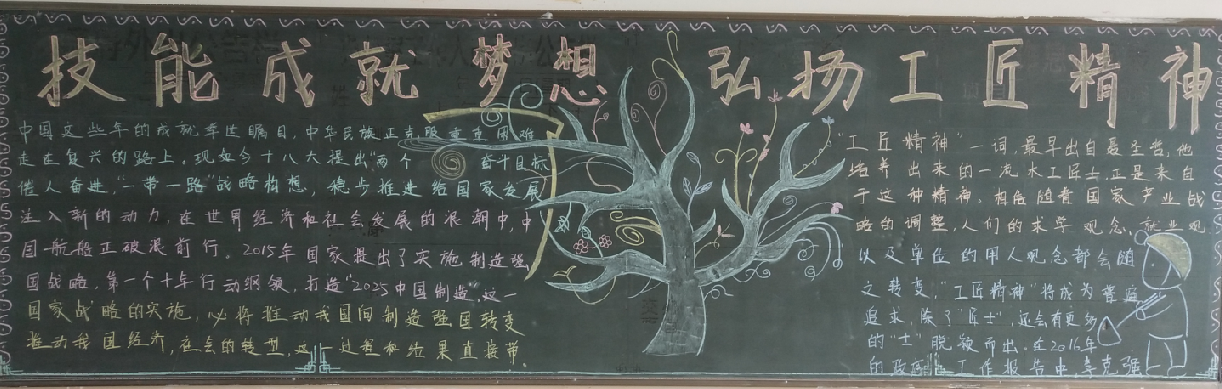 技能成就梦想 弘扬工匠精神
中国这些年的成就举世瞩目,中华民族正克服重重困难
走在复兴的路上,现如今十八大提出"两个 奋斗目标
催人奋进,"一带一路"战略构想,稳步推进给国家发展
注入新的动力,在世界经济和社会发展的浪潮中,中
国航船正破浪前行。2015年国家提出了实施制造强
国战略,第一个十年行动纲领,打造"2025中国制造",这一
国家战略的实施,必将推动我国向制造强国转变
推动我国经济,社会的转型,这一过程和结果直接带
"工匠精神"一词,最早出自聂圣哲,他
培养出来的一流木工匠士,正是来自
于这种精神,相信随着国家产业战
略的调整,人们的求学观念,就业观
以及单位的用人观念都会随
之转变,"工匠精神"将成为普遍
追求,除了"匠士",还会有更多
的"士"脱颖而出。在2016年
的政府工作报告中,李克强